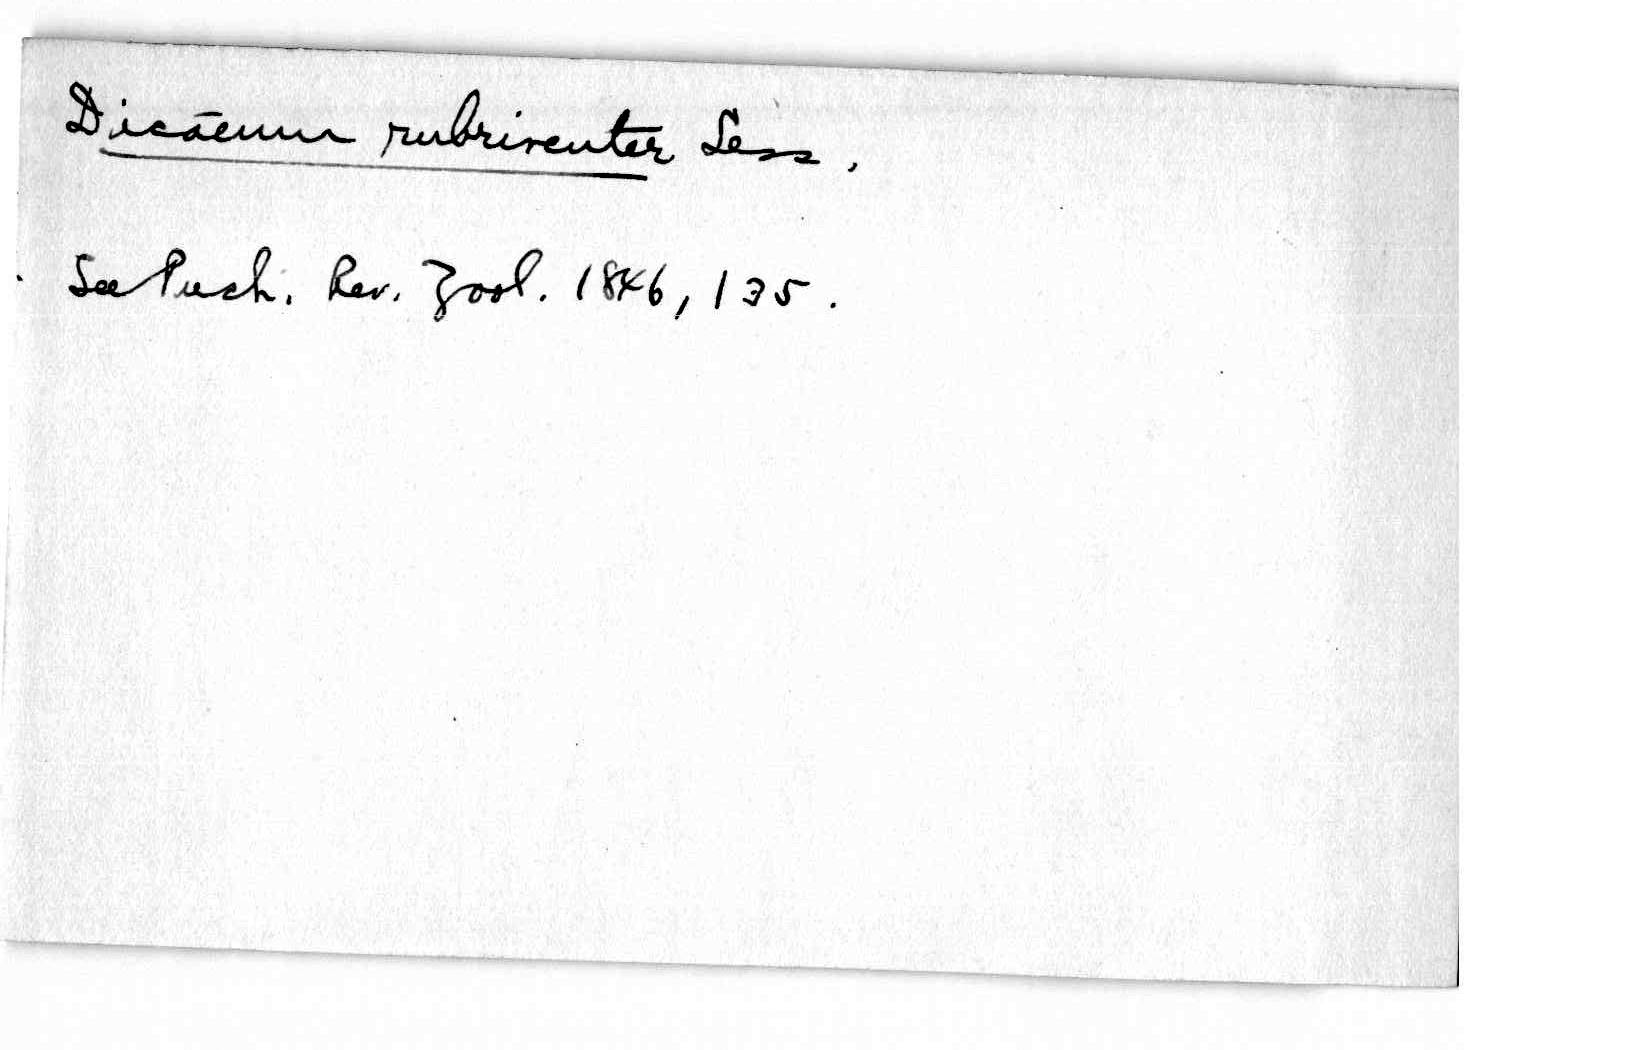 Dicaeum rubriventer Less.
See Puch. Rev. Zool. 1846, 135.